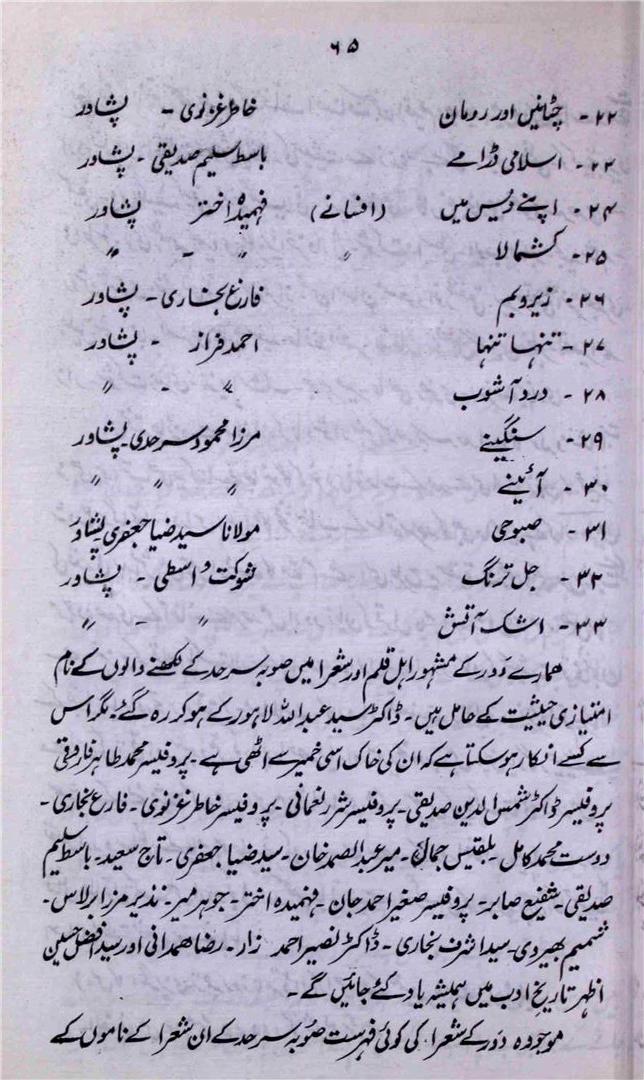 ۶۵
۲۲ - چٹانیں اور رومان خاطر غزنوی - پشاور
۲۳ - اسلامی ڈرامے باسط سلیم صدیقی - پشاور
۲۴ - اپنے دیس میں (افسانے) فہمیدہ اختر پشاور
۲۵ - کشمالا 〃 〃 - 〃
۲۶ - زیر و بم فارغ بخاری - پشاور
۲۷ - تنہا تنہا احمد فراز - پشاور
۲۸ - درد آشوب 〃 - 〃
۲۹ - سنگینے مرزا محمود سرحدی - پشاور
۳۰ - آئینے 〃 〃 〃
۳۱ - صبوحی مولانا سید ضیا جعفری پشاور
۳۲ - جل ترنگ شوکت واسطی - پشاور
۳۳ - اشک آتش 〃 - 〃
ہمارے دَور کے مشہور اہل قلم اور شعرا میں صوبہ سرحد کے لکھنے والوں کے نام
امتیازی حیثیت کے حامل ہیں - ڈاکٹر سید عبداللہ لاہور کے ہو کر رہ گئے - مگر اس
سے کسے انکار ہو سکتا ہے کہ ان کی خاک اسی خمیر سے اٹھی ہے - پروفیسر محمد طاہر فاروقی
پروفیسر ڈاکٹر شمس الدین صدیقی - پروفیسر شرر نعمانی - پروفیسر خاطر غزنوی - فارغ بخاری -
دوست محمد کامل - بلقیس جمال - میر عبدالصمد خان - سید ضیا جعفری - تاج سعید - باسط سلیم
صدیقی - شفیع صابر - پروفیسر صغیر احمد جان - فہمیدہ اختر - جوہر میر - نذیر مرزا برلاس -
شمیم بھیروی - سید اشرف بخاری - ڈاکٹر نصیر احمد زار - رضا ہمدانی اور سید افضل حسین
اظہر تاریخ ادب میں ہمیشہ یاد کئے جائیں گے -
موجودہ دَور کے شعرا کی کوئی فہرست صُوبہ سرحد کے ان شعرا کے ناموں کے